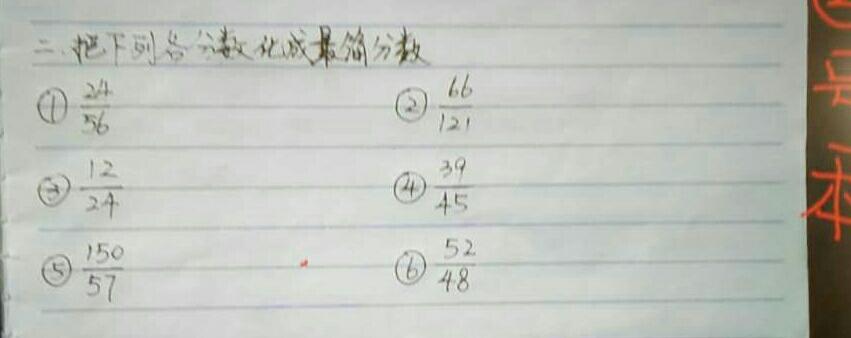 二、把下列各分数化成最简分数
① 24/56 ② 66/121
③ 12/24 ④ 39/45
⑤ 150/57 ⑥ 52/48
本